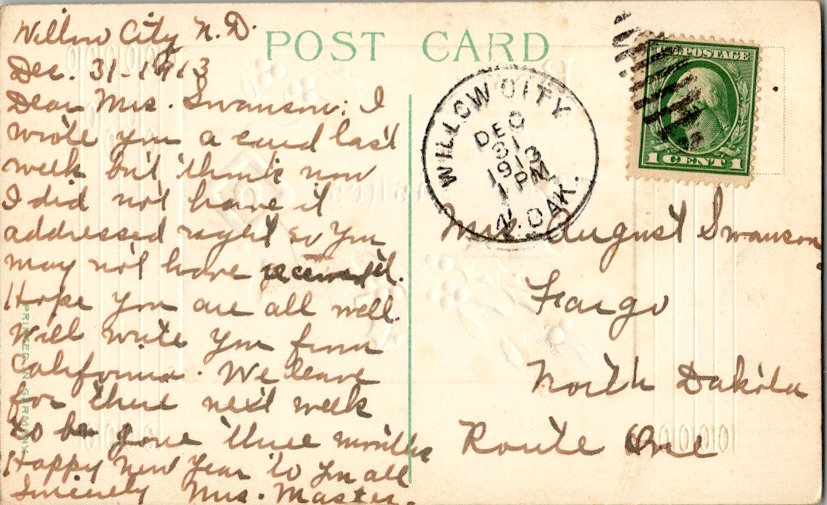 Willow City N.D.
Dec. 31-1913
Dear Mrs. Swanson: I
wrote you a card last
week but think now
I did not have it
addressed right so you
may not have received it.
Hope you are all well.
Will write you from
California. We leave
for there next week
to be gone three months
Happy New Year to you all
Sincerely Mrs. Master.
POST CARD
WILLOW CITY
DEC
31
1913
1 PM
N. DAK.
POSTAGE
1 CENT 1
Mrs. August Swanson
Fargo
North Dakota
Route One